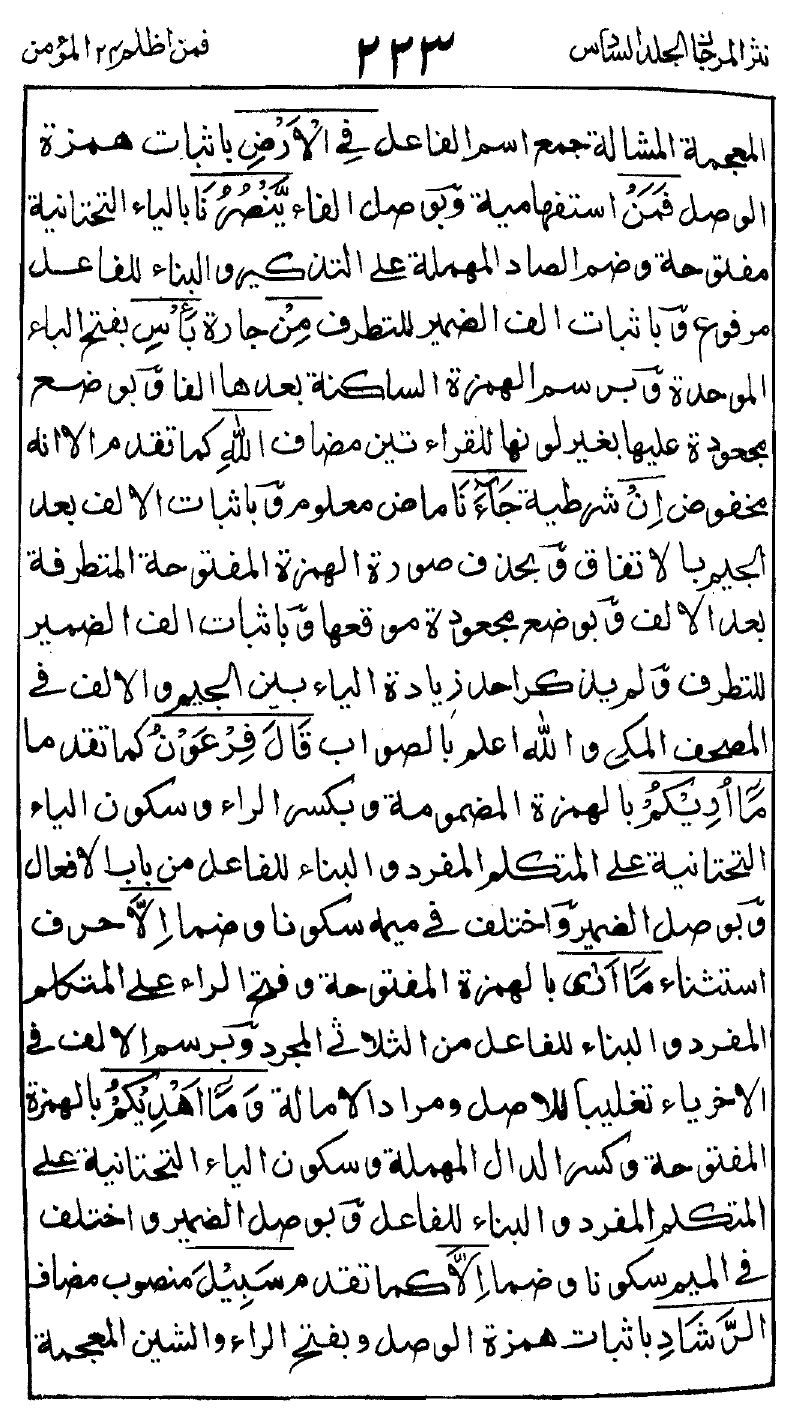 نثر المرجان الجلد السادس ٢٢٣ فمن اظلم ٢٤ المؤمن
المعجمة المشالة جمع اسم الفاعل فِي الْاَرْضِ باثبات همزة
الوصل فَمَنْ استفهامية وَّبوصل الفاء يَّنْصُرُنَا بالياء التحتانية
مفتوحة وضم الصاد المهملة على التذكير والبناء للفاعل
مرفوع وَّباثبات الف الضمير للتطرف مِنْ جارة بَأْسِ بفتح الباء
الموحدة وَّبرسم الهمزة الساكنة بعدها الفا وَّبوضع
مجعودة عليها بغير لونها للقراءتين مضاف اللهِ كما تقدم الا انه
مخفوض اِنْ شرطية جَآءَنَا ماض معلوم وَّباثبات الالف بعد
الجيم بالاتفاق وَّبحذف صورة الهمزة المفتوحة المتطرفة
بعد الالف وَّبوضع مجعودة موقعها وَّباثبات الف الضمير
للتطرف وَّلم يذكر احد زيادة الياء بين الجيم والالف في
المصحف المكي والله اعلم بالصواب قَالَ فِرْعَوْنُ كما تقدم ما
مَآ اُرِيْكُمْ بالهمزة المضمومة وبكسر الراء وسكون الياء
التحتانية على المتكلم المفرد والبناء للفاعل من باب الافعال
وَّبوصل الضمير وَّاختلف في ميمه سكونا وضما اِلَّا حرف
استثناء مَآ اَرٰى بالهمزة المفتوحة وفتح الراء على المتكلم
المفرد والبناء للفاعل من الثلاثي المجرد وَّبرسم الالف في
الاخر ياء تغليبا للاصل ومراد الامالة وَمَآ اَهْدِيْكُمْ بالهمزة
المفتوحة وكسر الدال المهملة وسكون الياء التحتانية على
المتكلم المفرد والبناء للفاعل وَّبوصل الضمير واختلف
في الميم سكونا وضما اِلَّا كما تقدم سَبِيْلَ منصوب مضاف
الرَّشَادِ باثبات همزة الوصل وبفتح الراء والشين المعجمة